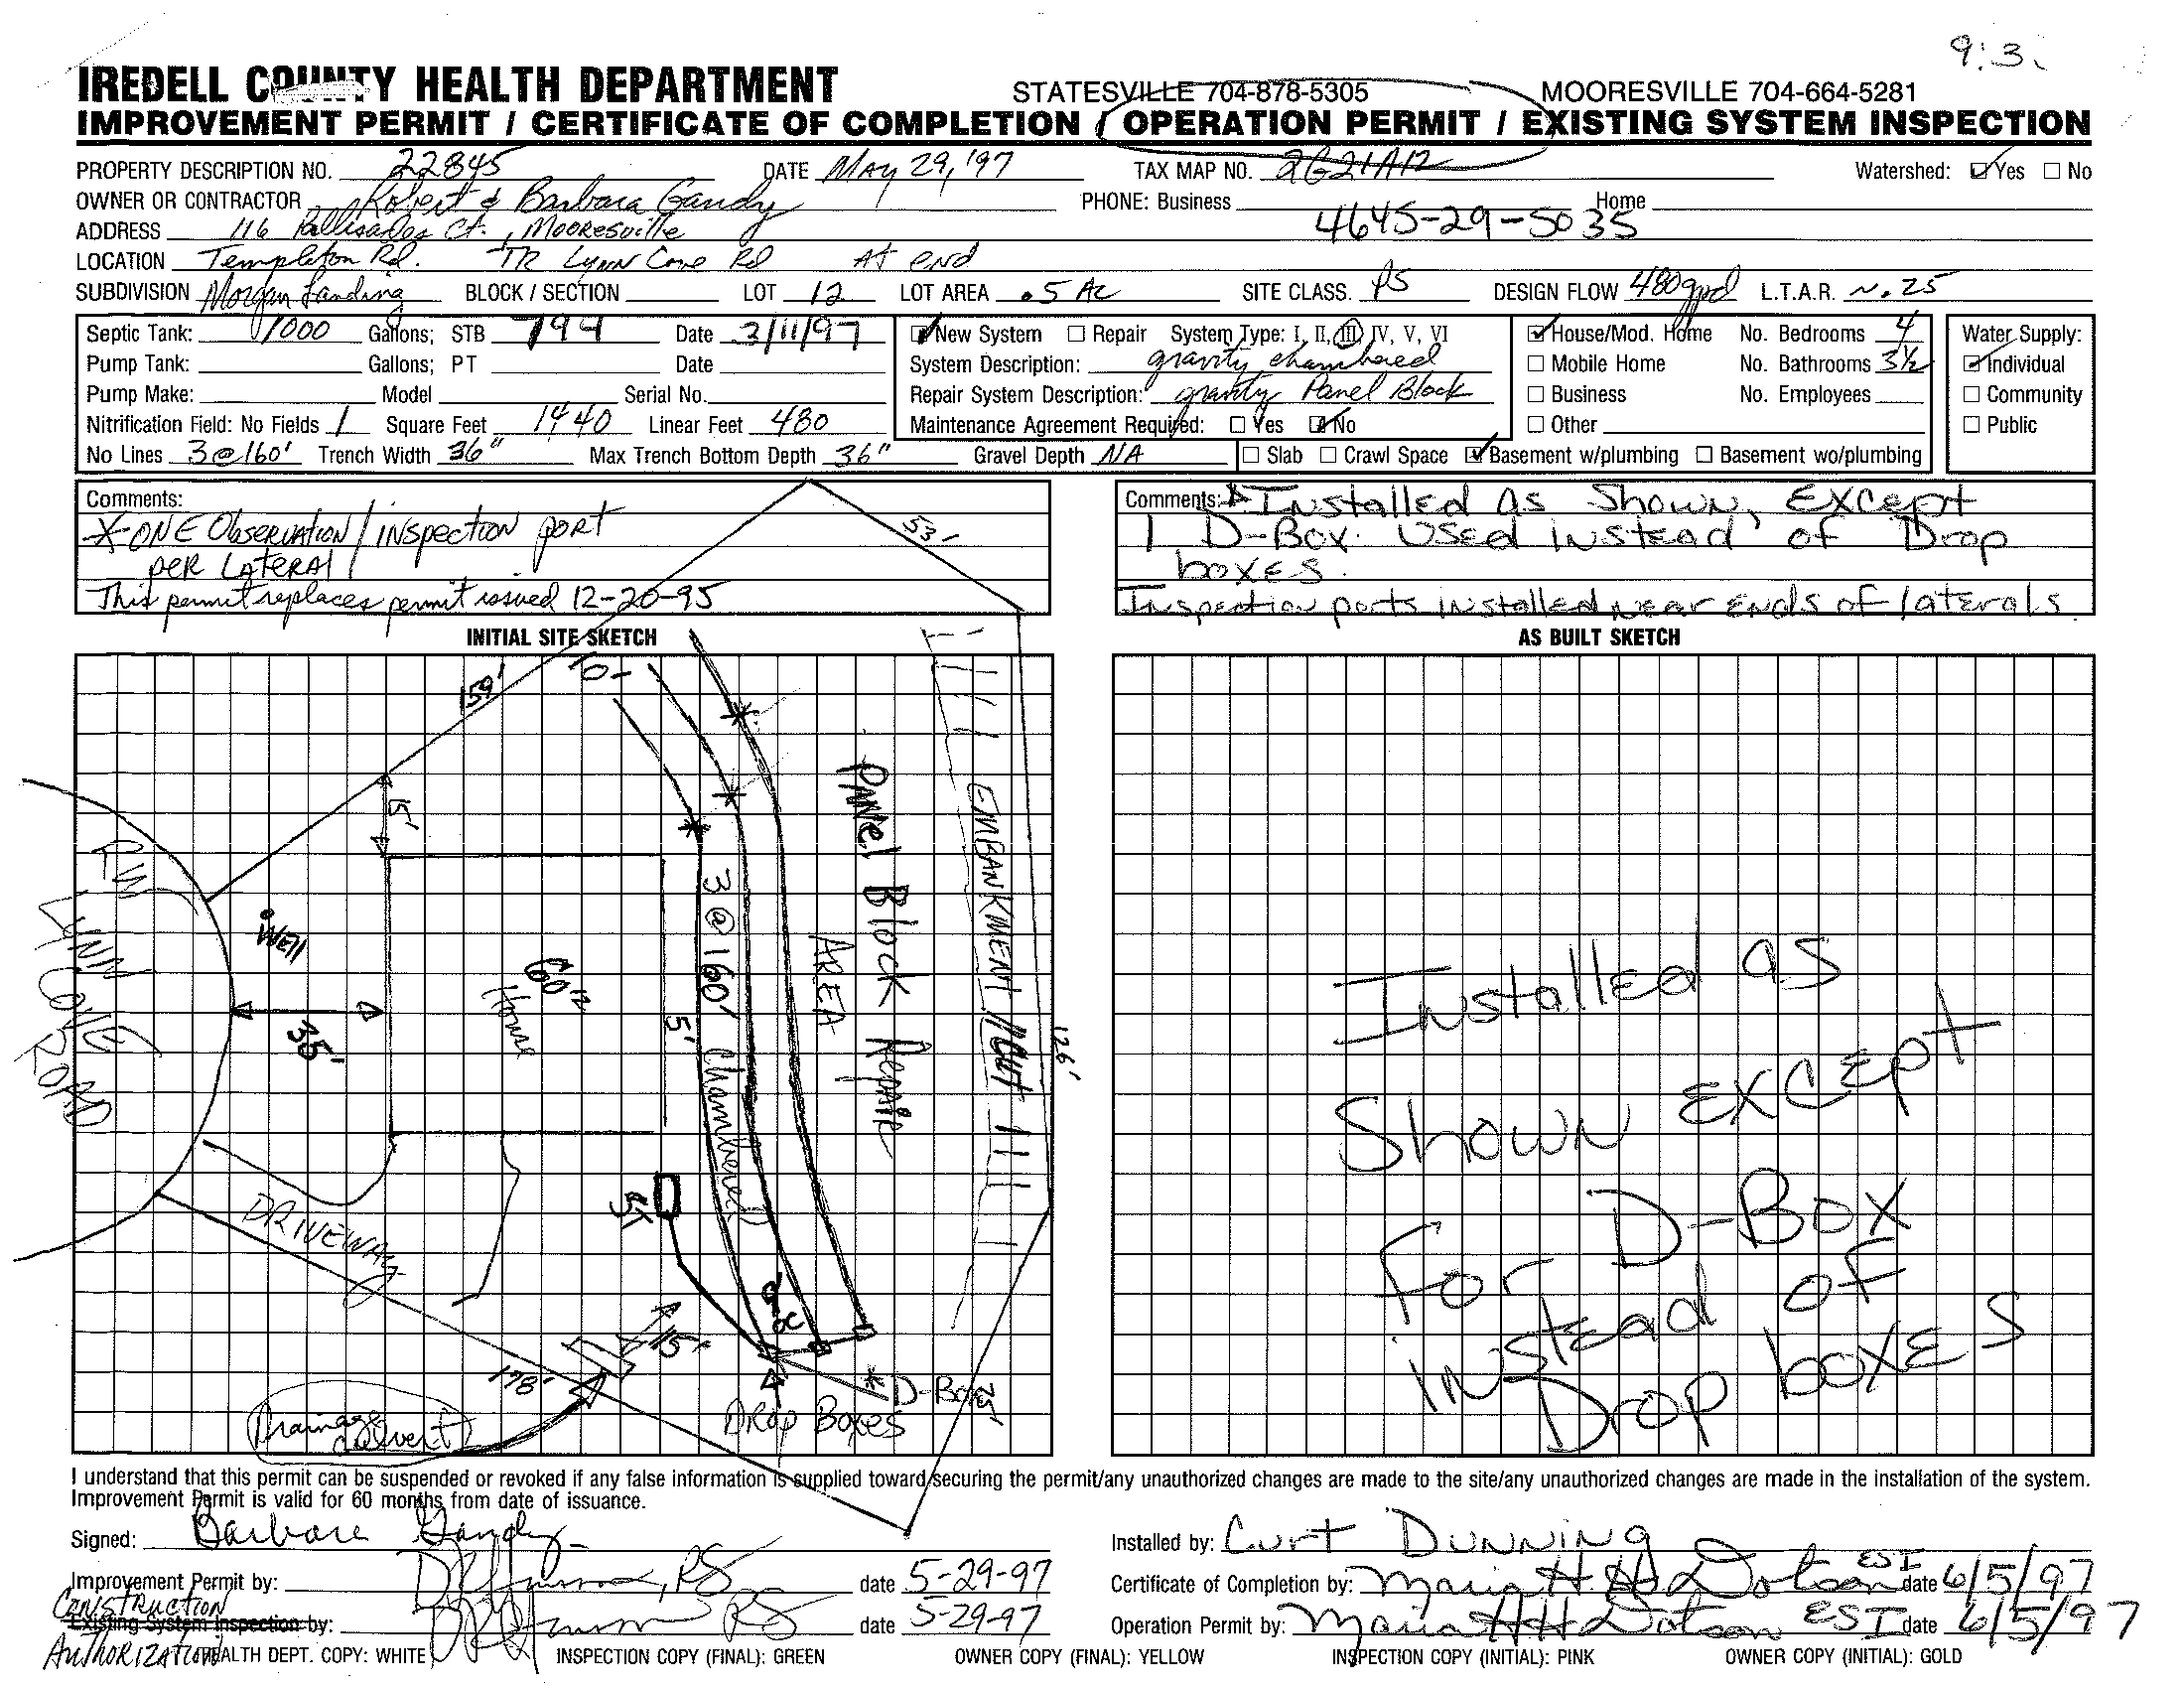 9:3.
IREDELL COUNTY HEALTH DEPARTMENT STATESVILLE 704-878-5305 MOORESVILLE 704-664-5281
IMPROVEMENT PERMIT / CERTIFICATE OF COMPLETION / OPERATION PERMIT / EXISTING SYSTEM INSPECTION
PROPERTY DESCRIPTION NO. 22845 DATE May 29, '97 TAX MAP NO. 2G21A12 Watershed: ☑ Yes ☐ No
OWNER OR CONTRACTOR Robert & Barbara Gandy PHONE: Business Home
4645-29-5035
ADDRESS 116 Pallisades Ct., Mooresville
LOCATION Templeton Rd. TR Lynn Cove Rd At end
SUBDIVISION Morgan Landing BLOCK / SECTION LOT 12 LOT AREA .5 Ac SITE CLASS. PS DESIGN FLOW 480gpd L.T.A.R. ~.25
Septic Tank: 1000 Gallons; STB 799 Date 3/11/97 ☑ New System ☐ Repair System Type: I, II, III, IV, V, VI ☑ House/Mod. Home No. Bedrooms 4 Water Supply:
Pump Tank: Gallons; PT Date System Description: gravity chambered ☐ Mobile Home No. Bathrooms 3½ ☑ Individual
Pump Make: Model Serial No. Repair System Description: gravity Panel Block ☐ Business No. Employees ☐ Community
Nitrification Field: No Fields 1 Square Feet 1440 Linear Feet 480 Maintenance Agreement Required: ☐ Yes ☑ No ☐ Other ☐ Public
No Lines 3@160' Trench Width 36" Max Trench Bottom Depth 36" Gravel Depth NA ☐ Slab ☐ Crawl Space ☑ Basement w/plumbing ☐ Basement wo/plumbing
Comments:
*-ONE Observation/inspection port
per LATERAL
This permit replaces permit issued 12-20-95
53-
Comments: * Installed as Shown, Except
1 D-Box used instead of Drop
boxes.
Inspection ports installed near ends of laterals.
INITIAL SITE SKETCH
159'
10-
15'
R/W
LYNN COVE ROAD
Well
35'
60'
House
5'
3 @ 160' Chambered
Panel Block Repair
AREA
EMBANKMENT // Cut
126'
DRIVEWAY
ST
15'
178'
Drainage
culvert
* D-Box
DROP BOXES
AS BUILT SKETCH
Installed as
Shown except
For D-Box
instead of
Drop boxes
I understand that this permit can be suspended or revoked if any false information is supplied toward securing the permit/any unauthorized changes are made to the site/any unauthorized changes are made in the installation of the system.
Improvement Permit is valid for 60 months from date of issuance.
Signed: Barbara Gandy
Installed by: Curt Dunning
Improvement Permit by: RS date 5-29-97
Certificate of Completion by: Maria H. Dotson ESI date 6/5/97
Construction
Existing System Inspection by: RS date 5-29-97
Authorization
Operation Permit by: Maria H Dotson ESI date 6/5/97
HEALTH DEPT. COPY: WHITE INSPECTION COPY (FINAL): GREEN OWNER COPY (FINAL): YELLOW INSPECTION COPY (INITIAL): PINK OWNER COPY (INITIAL): GOLD